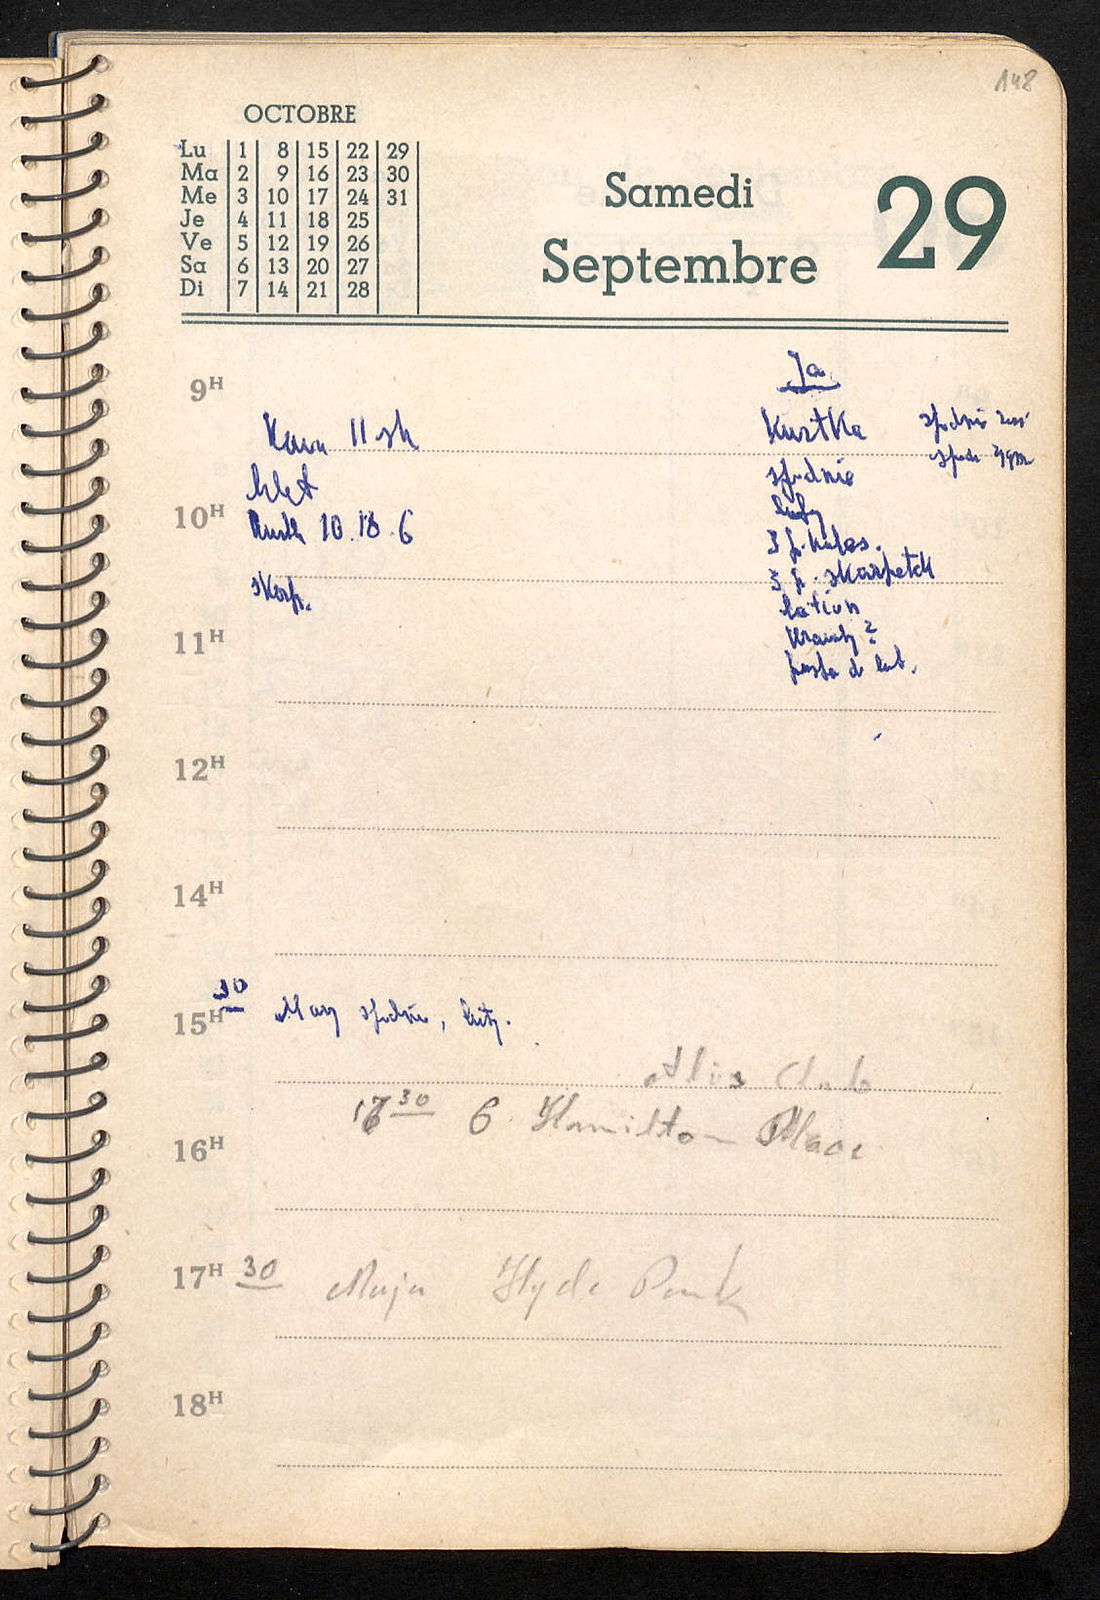 148
OCTOBRE
Lu 1 8 15 22 29
Ma 2 9 16 23 30
Me 3 10 17 24 31
Je 4 11 18 25
Ve 5 12 19 26
Sa 6 13 20 27
Di 7 14 21 28
Samedi 29
Septembre
Ja
9H
Kawa 11 sh
Kurtka
spodnie
10H
10.18.6
buty
3 p. kales.
skarp.
3 p. skarpetek
lotion
11H
Krawaty ?
pasta d but.
12H
14H
30
15H Mary spodnie, buty.
Club
17 30 6 Hamilton Place
16H
17H 30 Maja Hyde Park
18H